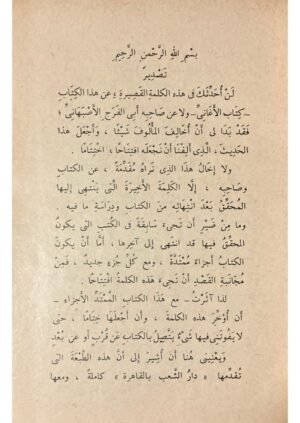 بسم الله الرَّحمن الرَّحيم
تَصْدِير
لَنْ أُحَدِّثَكَ فى هذه الكلمةِ القَصِيرةِ ؛ عن هذا الكِتابِ
– كِتابِ الأَغَانِيِّ – ولا عن صَاحِبِه أَبِى الفَرَج الأَصْبَهانِيِّ ؛
فَقَدْ بَدَا لى أَنْ أُخَالِفَ المَأْلُوفَ شَيْئًا ، وَأَجْعَلَ هذا
الحَدِيثَ ، الَّذى أَلِفْنَا أَنْ نَجْعَلَه افْتِتَاحًا ، اخْتِتَامًا .
ولا إِخَالُ هَذا الذى تَرَاهُ مُقَدِّمَةً ، عن الكِتابِ
وصَاحِبِه ، إلَّا الكَلِمَةَ الأَخِيرَةَ الَّتى يَنْتَهى إليها
المُحَقِّقُ بَعْدَ انْتِهَائِه من الكِتابِ ودِرَاسَةِ ما فيه .
وما مِنْ ضَيْرٍ أَن تَجِىءَ سَابِقَةً فى الكُتُبِ التى يكونُ
المحقِّقُ فيها قد انتهَى إلى آخِرِها ، أَمَّا أَنْ يَكُونَ
الكتابُ أجزاءً مُمْتَدَّةً ، ومع كُلِّ جُزءٍ جديدٌ ، فَمِنْ
مُجَانَبَةِ القَصْدِ أَنْ تَجِىءَ هذه الكلمةُ افْتِتَاحًا .
لذا آثَرْتُ – مع هذا الكِتابِ المُمْتَدِّ الأَجزاءِ –
أَن أُؤَخِّرَ هذه الكلمة ، وأَن أَجْعَلَها خِتَامًا ، حَتَّى
لا يَفُوتَنِى فيها شَىْءٌ يَتَّصِلُ بالكتاب عن قُرْبٍ أَو عن بُعْدٍ
وَيَعْنِينِى هُنا أَن أُشِيرَ إلى أَنَّ هذه الطَّبْعَةَ التى
تُقدِّمُها « دارُ الشَّعب بالقاهرة » كاملةً ، ومعها